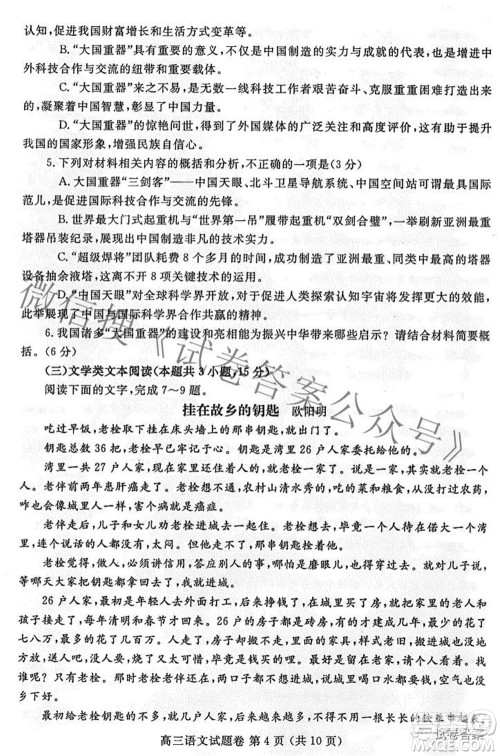 认知，促进我国财富增长和生活方式变革等。
B.“大国重器”具有重要的意义，不仅是中国制造的实力与成就的代表，也是促进中
外科技合作与交流的纽带和重要力量。
C.“大国重器”的亮相，是无数一线科技工作者艰苦奋斗、克服重重困难取得的成
绩，凝聚着中国智慧，彰显了民族力量。
D.“大国重器”的惊艳问世，得到了外国媒体的广泛关注和高度评价，有力地提升
我国的国家形象，增强民族自信心。
5.下列对材料相关内容的概括和分析，不正确的一项是(3分)
A.大国重器“三剑客”——中国天眼、北斗卫星导航系统、中国空间站极具大国国际
范儿，是促进国际科技合作与交流的典范。
B.世界最大门式起重机与世界最大履带起重机“双剑合璧”，一举刷新亚洲最重
塔器吊装纪录，展现了中国制造非凡的技术实力。
C.“超级焊将”团队能用8个月时间完成世界最高、亚洲最重、同类产品中的塔器
设备抽余液塔，离不开8项关键技术的运用。
D.“中国天眼”对全球科学界开放，对于促进人类探索认知宇宙将发挥重要作用，
体现了中国科学界合作共赢的精神。
6.我国诸多“大国重器”的建设和亮相能为振兴中华带来哪些启示？请结合材料简要概
括。(6分)
(三)文学类文本阅读(本题共3小题，15分)
阅读下面的文字，完成7～9题。
挂在故乡的钥匙 欧阳明
吃过早饭，老栓取下挂在床头墙上的那串钥匙，出了门。
钥匙总数36把，老栓早早牢记于心。湾里26户人家委托给他的钥匙，一把不少。
湾里一共27户人家，除了老栓，其他的都进了城，就剩老栓一个人。老栓是有老伴
的，老伴前两年患肝癌走了。老栓老想不通，农村山清水秀，吃的菜和粮食，大多没打过农
药，空气也新鲜，咋会患癌症呢？
老伴走后，儿子和女儿劝老栓进城去住，老栓也想去，毕竟一个人待在乡下太孤单。
可湾里人都不赞成老栓进城，理由是老栓要是走了，湾里就没人了，没人的湾还像湾吗？
以后大家回来，都没个落脚的地方了。
老栓觉得湾里人说得在理，就没进城，答应湾里人的请求，给他们看护房子，就这样，
等哪天大家把钥匙都取走了，自己再进城。
26户人家，最初是年轻人去外面打工，挣了钱，就在城里买了房，就把家里的老人和
孩子接走了。搬得早的人家，买房花钱少，只花几万元，后来房价年年大涨，最少的花了
七八万，最多的花了几百万。老栓想不明白，城里有啥好的？人那么多，车那么多，咋就
一个个像着了魔一样往城里赶？就拿自己来说，大儿子在县城买了房子，小女儿在大城
市买了房子，他们都叫老栓去住，老栓去住了几天，浑身都不自在，城里空气也没
乡下好！
最初给老栓钥匙的是老栓的
高三语文试题卷 第4页(共10页)
微信搜《试卷答案公众号》
试卷答案